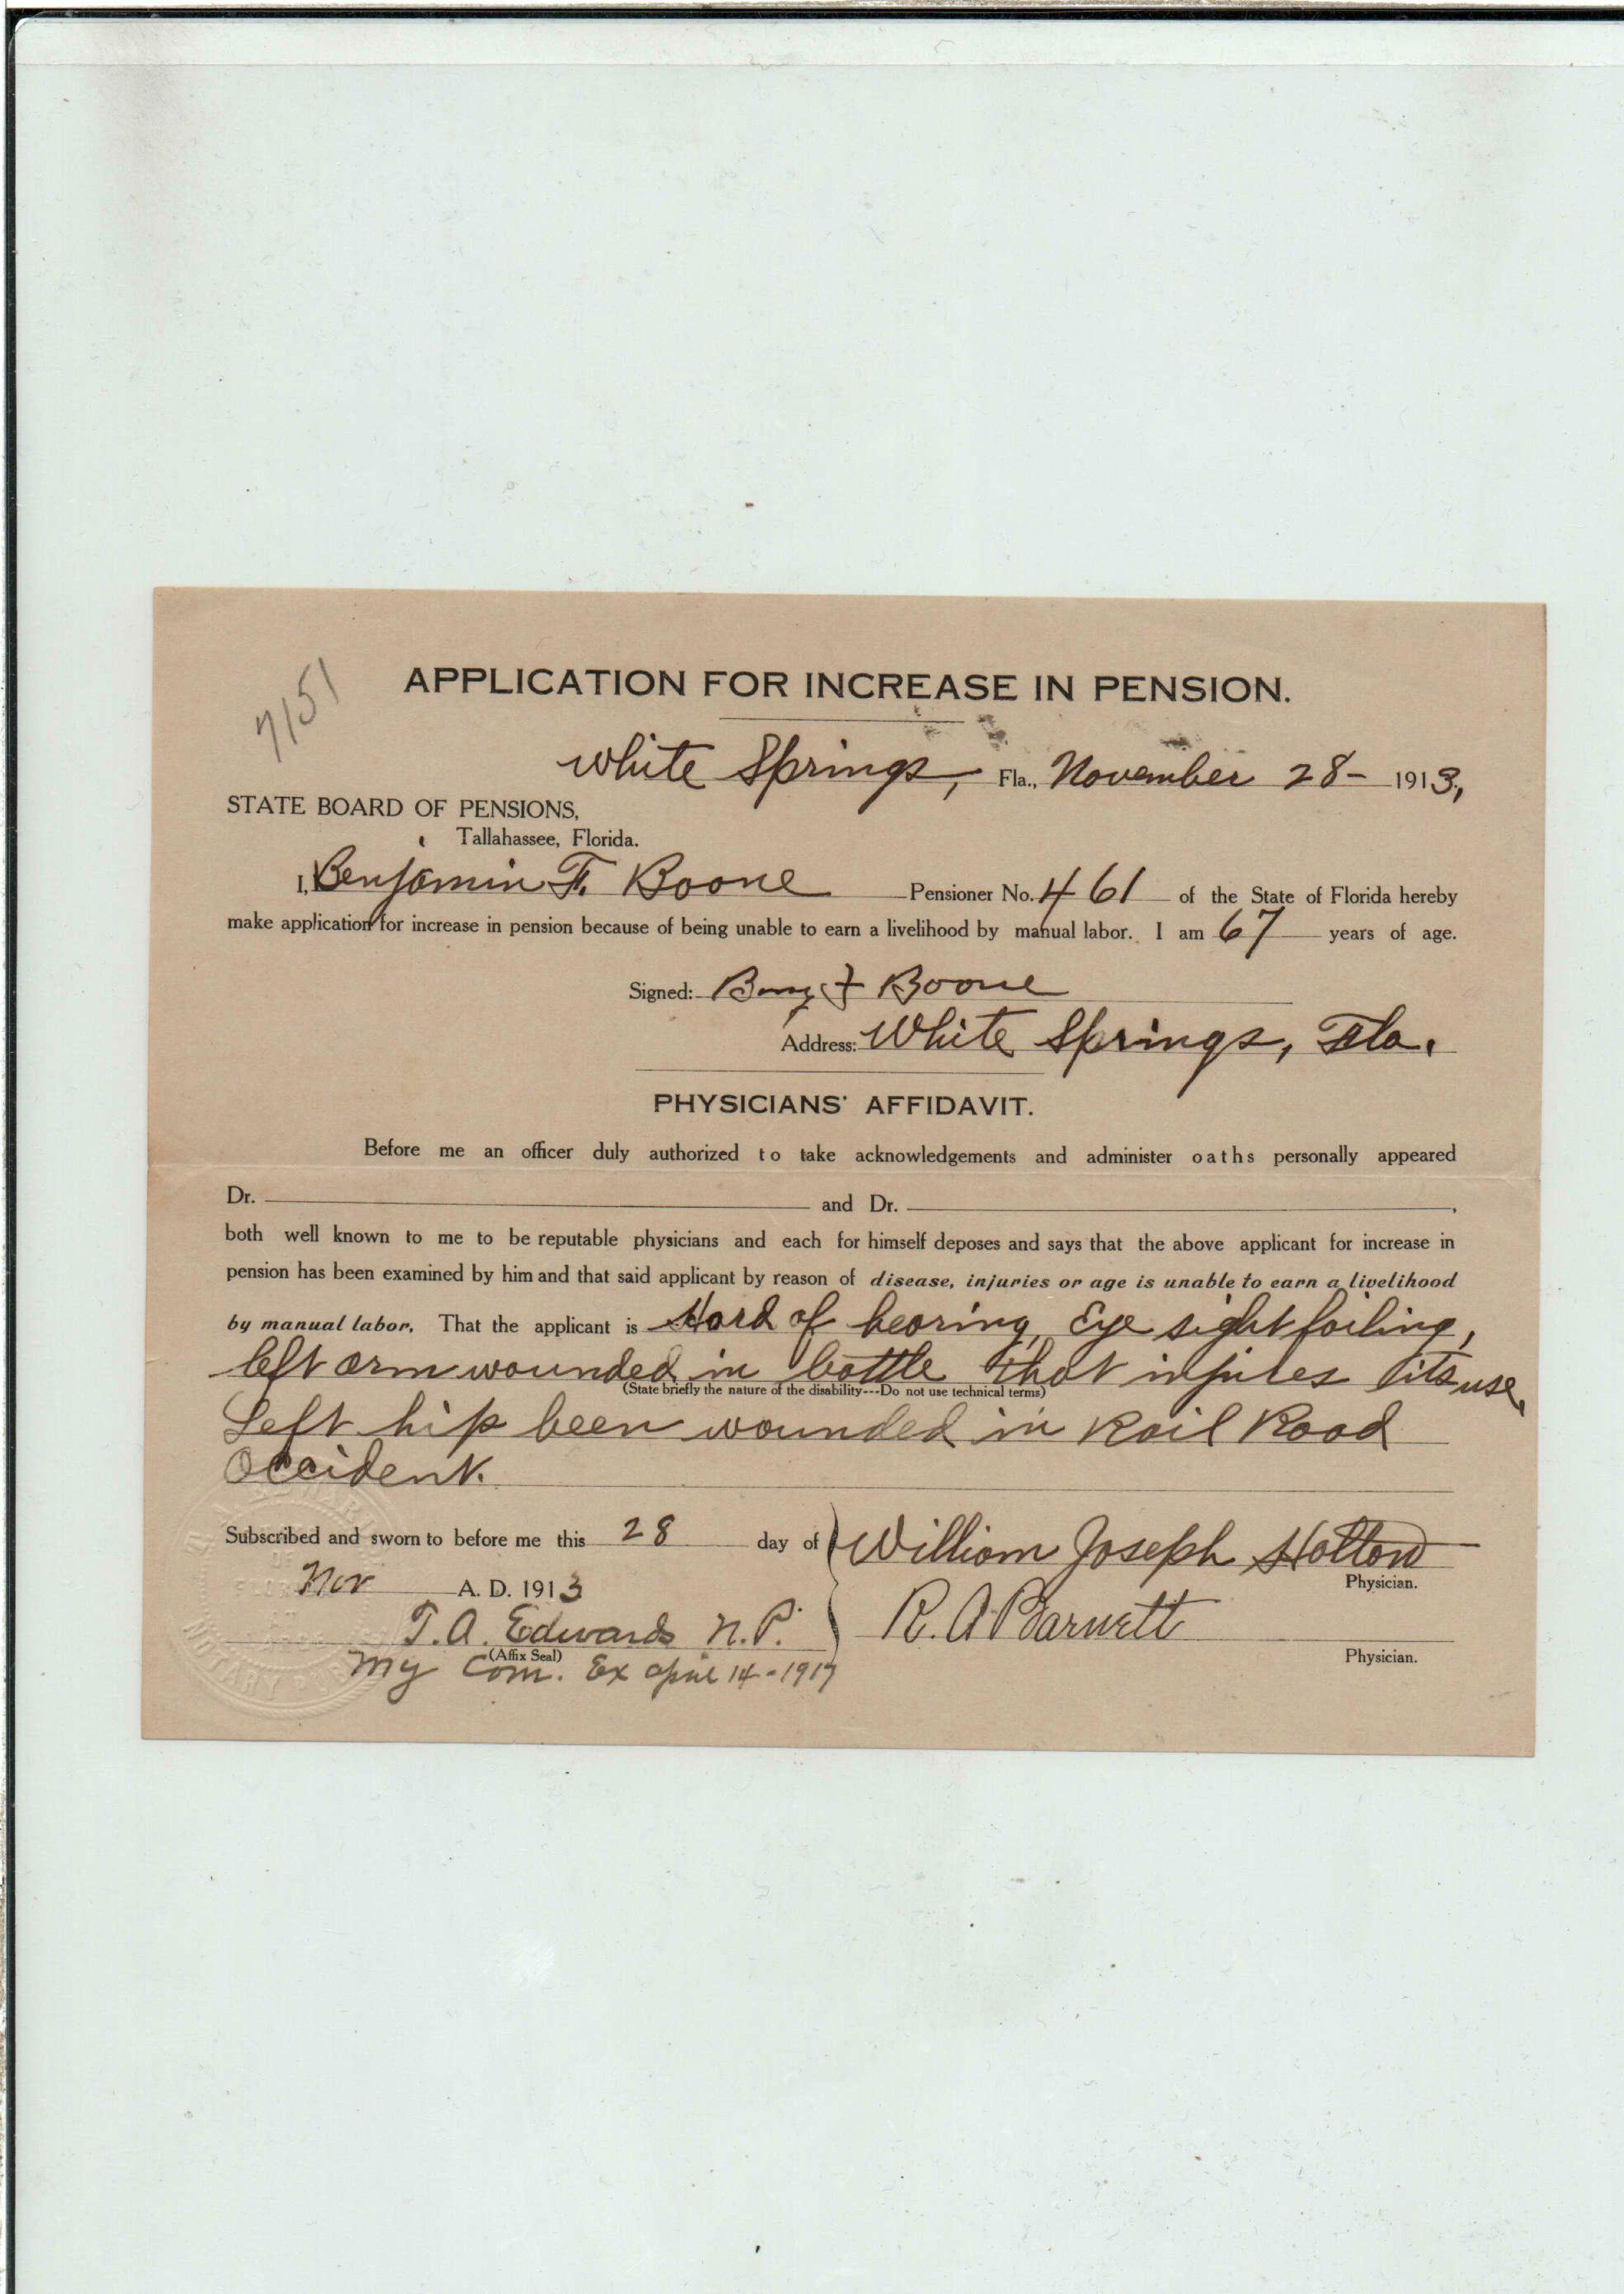 7151
APPLICATION FOR INCREASE IN PENSION.
White Springs, Fla., November 28- 1913,
STATE BOARD OF PENSIONS,
Tallahassee, Florida.
I, Benjamin F. Boone Pensioner No. 461 of the State of Florida hereby
make application for increase in pension because of being unable to earn a livelihood by manual labor. I am 67 years of age.
Signed: Benj F Boone
Address: White Springs, Fla.
PHYSICIANS' AFFIDAVIT.
Before me an officer duly authorized to take acknowledgements and administer oaths personally appeared
Dr. and Dr. ,
both well known to me to be reputable physicians and each for himself deposes and says that the above applicant for increase in
pension has been examined by him and that said applicant by reason of disease, injuries or age is unable to earn a livelihood
by manual labor. That the applicant is Hard of hearing, Eye sight failing,
left arm wounded in battle that injures its use,
(State briefly the nature of the disability---Do not use technical terms)
Left hip been wounded in Rail Road
accident.
Subscribed and sworn to before me this 28 day of William Joseph Holton
Nov A. D. 1913 Physician.
T. A. Edwards N.P. R. A. Barnett
(Affix Seal) Physician.
My Com. Ex april 14-1917
NOTARY